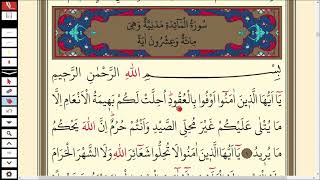 سُورَةُ الْمَائِدَةِ مَدَنِيَّةٌ وَهِيَ
مِائَةٌ وَعِشْرُونَ اٰيَةً
بِسْمِ اللهِ الرَّحْمٰنِ الرَّحِيمِ
يَٓا اَيُّهَا الَّذِينَ اٰمَنُٓوا اَوْفُوا بِالْعُقُودِ اُحِلَّتْ لَكُمْ بَهِيمَةُ الْاَنْعَامِ اِلَّا
مَا يُتْلٰى عَلَيْكُمْ غَيْرَ مُحِلِّي الصَّيْدِ وَاَنْتُمْ حُرُمٌ اِنَّ اللهَ يَحْكُمُ
مَا يُرِيدُ يَٓا اَيُّهَا الَّذِينَ اٰمَنُوا لَا تُحِلُّوا شَعَٓائِرَ اللهِ وَلَا الشَّهْرَ الْحَرَامَ